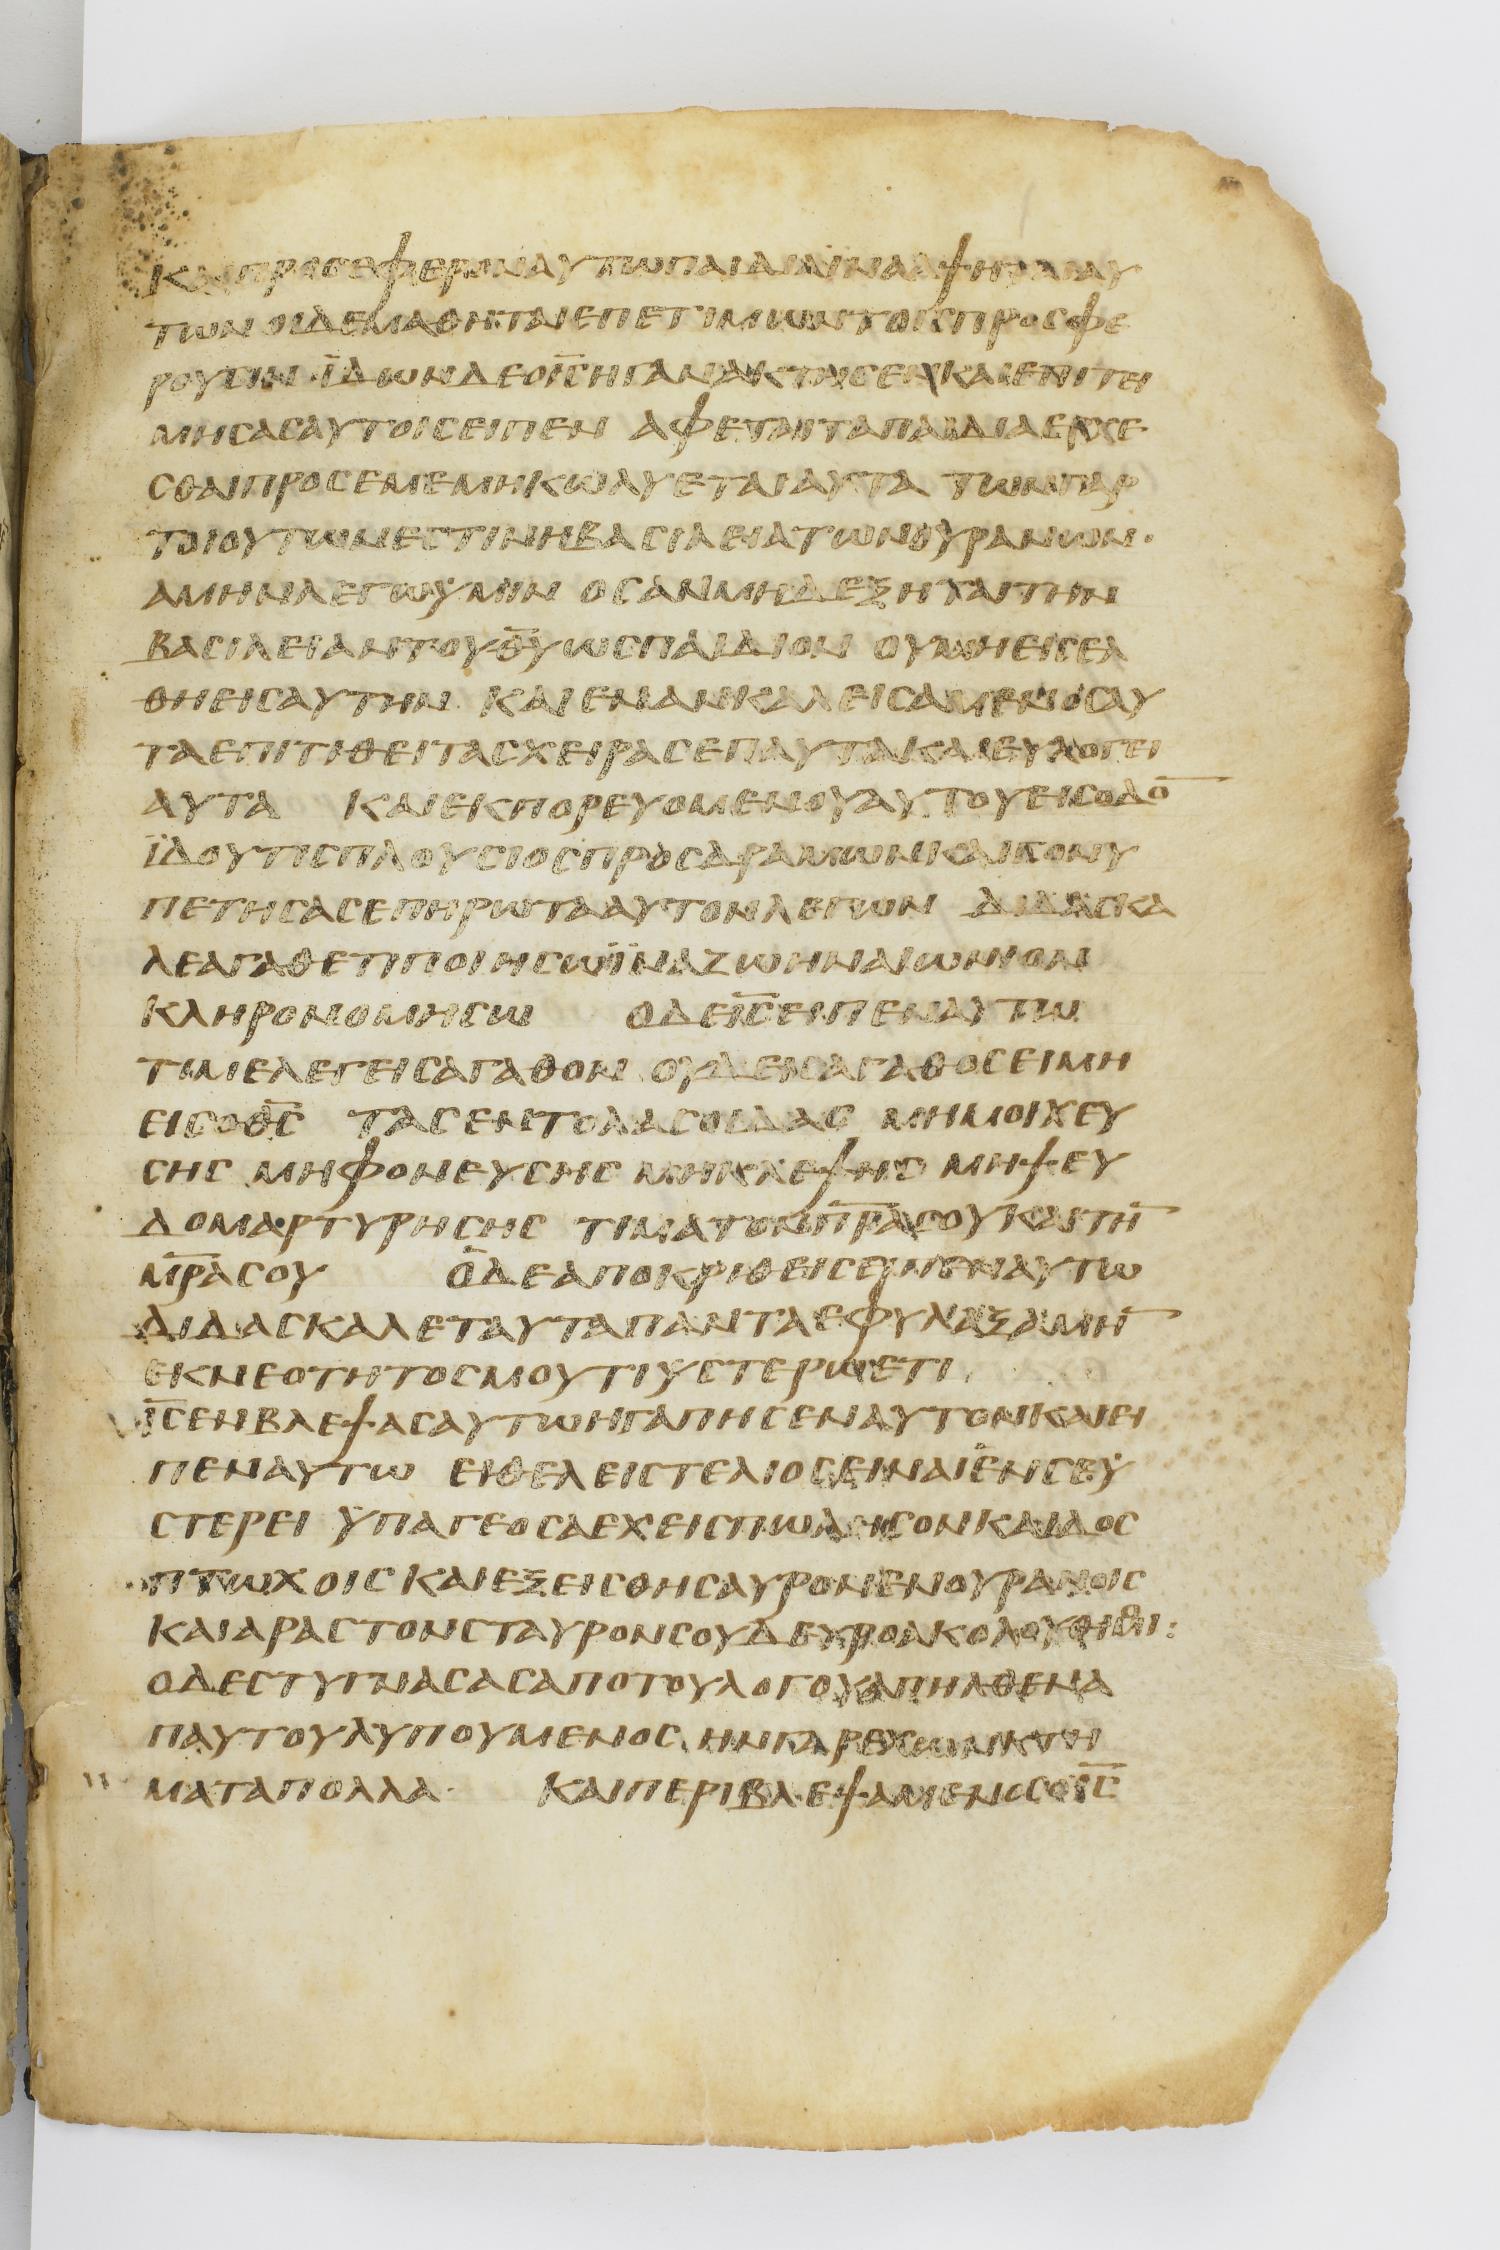 ΚΑΙΠΡΟΣΕΦΕΡΟΝΑΥΤΩΠΑΙΔΙΑΙΝΑΑΨΗΤΑΙΑΥ
ΤΩΝ ΟΙΔΕΜΑΘΗΤΑΙΕΠΕΤΙΜΩΝΤΟΙΣΠΡΟΣΦΕ
ΡΟΥΣΙΝ ΪΔΩΝΔΕΟΙ̅Σ̅ΗΓΑΝΑΚΤΗΣΕΝΚΑΙΕΠΙΤΕΙ
ΜΗΣΑΣΑΥΤΟΙΣΕΙΠΕΝ ΑΦΕΤΑΙΤΑΠΑΙΔΙΑΕΡΧΕ
ΣΘΑΙΠΡΟΣΕΜΕΜΗΚΩΛΥΕΤΑΙΑΥΤΑ ΤΩΝΓΑΡ
ΤΟΙΟΥΤΩΝΕΣΤΙΝΗΒΑΣΙΛΕΙΑΤΩΝΟΥΡΑΝΩΝ·
ΑΜΗΝΛΕΓΩΥΜΙΝ ΟΣΑΝΜΗΔΕΞΗΤΑΙΤΗΝ
ΒΑΣΙΛΕΙΑΝΤΟΥΘ̅Υ̅ΩΣΠΑΙΔΙΟΝ ΟΥΜΗΕΙΣΕΛ
ΘΗΕΙΣΑΥΤΗΝ ΚΑΙΕΝΑΝΚΑΛΕΙΣΑΜΕΝΟΣΑΥ
ΤΑΕΠΙΤΙΘΕΙΤΑΣΧΕΙΡΑΣΕΠΑΥΤΑΚΑΙΕΥΛΟΓΕΙ
ΑΥΤΑ ΚΑΙΕΚΠΟΡΕΥΟΜΕΝΟΥΑΥΤΟΥΕΙΣΟΔΟ̅
ΪΔΟΥΤΙΣΠΛΟΥΣΙΟΣΠΡΟΣΔΡΑΜΩΝΚΑΙΓΟΝΥ
ΠΕΤΗΣΑΣΕΠΗΡΩΤΑΑΥΤΟΝΛΕΓΩΝ ΔΙΔΑΣΚΑ
ΛΕΑΓΑΘΕΤΙΠΟΙΗΣΩΪΝΑΖΩΗΝΑΙΩΝΙΟΝ
ΚΛΗΡΟΝΟΜΗΣΩ ΟΔΕΙ̅Σ̅ΕΙΠΕΝΑΥΤΩ
ΤΙΜΕΛΕΓΕΙΣΑΓΑΘΟΝ ΟΥΔΕΙΣΑΓΑΘΟΣΕΙΜΗ
ΕΙΣΟΘ̅Σ̅ ΤΑΣΕΝΤΟΛΑΣΟΙΔΑΣ ΜΗΜΟΙΧΕΥ
ΣΗΣ ΜΗΦΟΝΕΥΣΗΣ ΜΗΚΛΕΨΗΣ ΜΗΨΕΥ
ΔΟΜΑΡΤΥΡΗΣΗΣ ΤΙΜΑΤΟΝΠ̅Ρ̅Α̅ΣΟΥΚΑΙΤΗ̅
Μ̅Ρ̅Α̅ΣΟΥ ΟΔΕΑΠΟΚΡΙΘΕΙΣΕΙΠΕΝΑΥΤΩ
ΔΙΔΑΣΚΑΛΕΤΑΥΤΑΠΑΝΤΑΕΦΥΛΑΞΑΜΗ̅
ΕΚΝΕΟΤΗΤΟΣΜΟΥΤΙΥΣΤΕΡΩΕΤΙ
Ι̅Σ̅ΕΝΒΛΕΨΑΣΑΥΤΩΗΓΑΠΗΣΕΝΑΥΤΟΝΚΑΙΕΙ
ΠΕΝΑΥΤΩ ΕΙΘΕΛΕΙΣΤΕΛΙΟΣΕΙΝΑΙΕΝΣΕΥ
ΣΤΕΡΕΙ ΫΠΑΓΕΟΣΑΕΧΕΙΣΠΩΛΗΣΟΝΚΑΙΔΟΣ
ΠΤΩΧΟΙΣ ΚΑΙΕΞΕΙΣΘΗΣΑΥΡΟΝΕΝΟΥΡΑΝΟΙΣ
ΚΑΙΑΡΑΣΤΟΝΣΤΑΥΡΟΝΣΟΥΔΕΥΡΟΑΚΟΛΟΥΘΙΜΟΙ:
ΟΔΕΣΤΥΓΝΑΣΑΣΑΠΟΤΟΥΛΟΓΟΥΑΠΗΛΘΕΝΑ
ΠΑΥΤΟΥΛΥΠΟΥΜΕΝΟΣ ΗΝΓΑΡΕΧΩΝΚΤΗ
ΜΑΤΑΠΟΛΛΑ· ΚΑΙΠΕΡΙΒΛΕΨΑΜΕΝΟΣΟΙ̅Σ̅